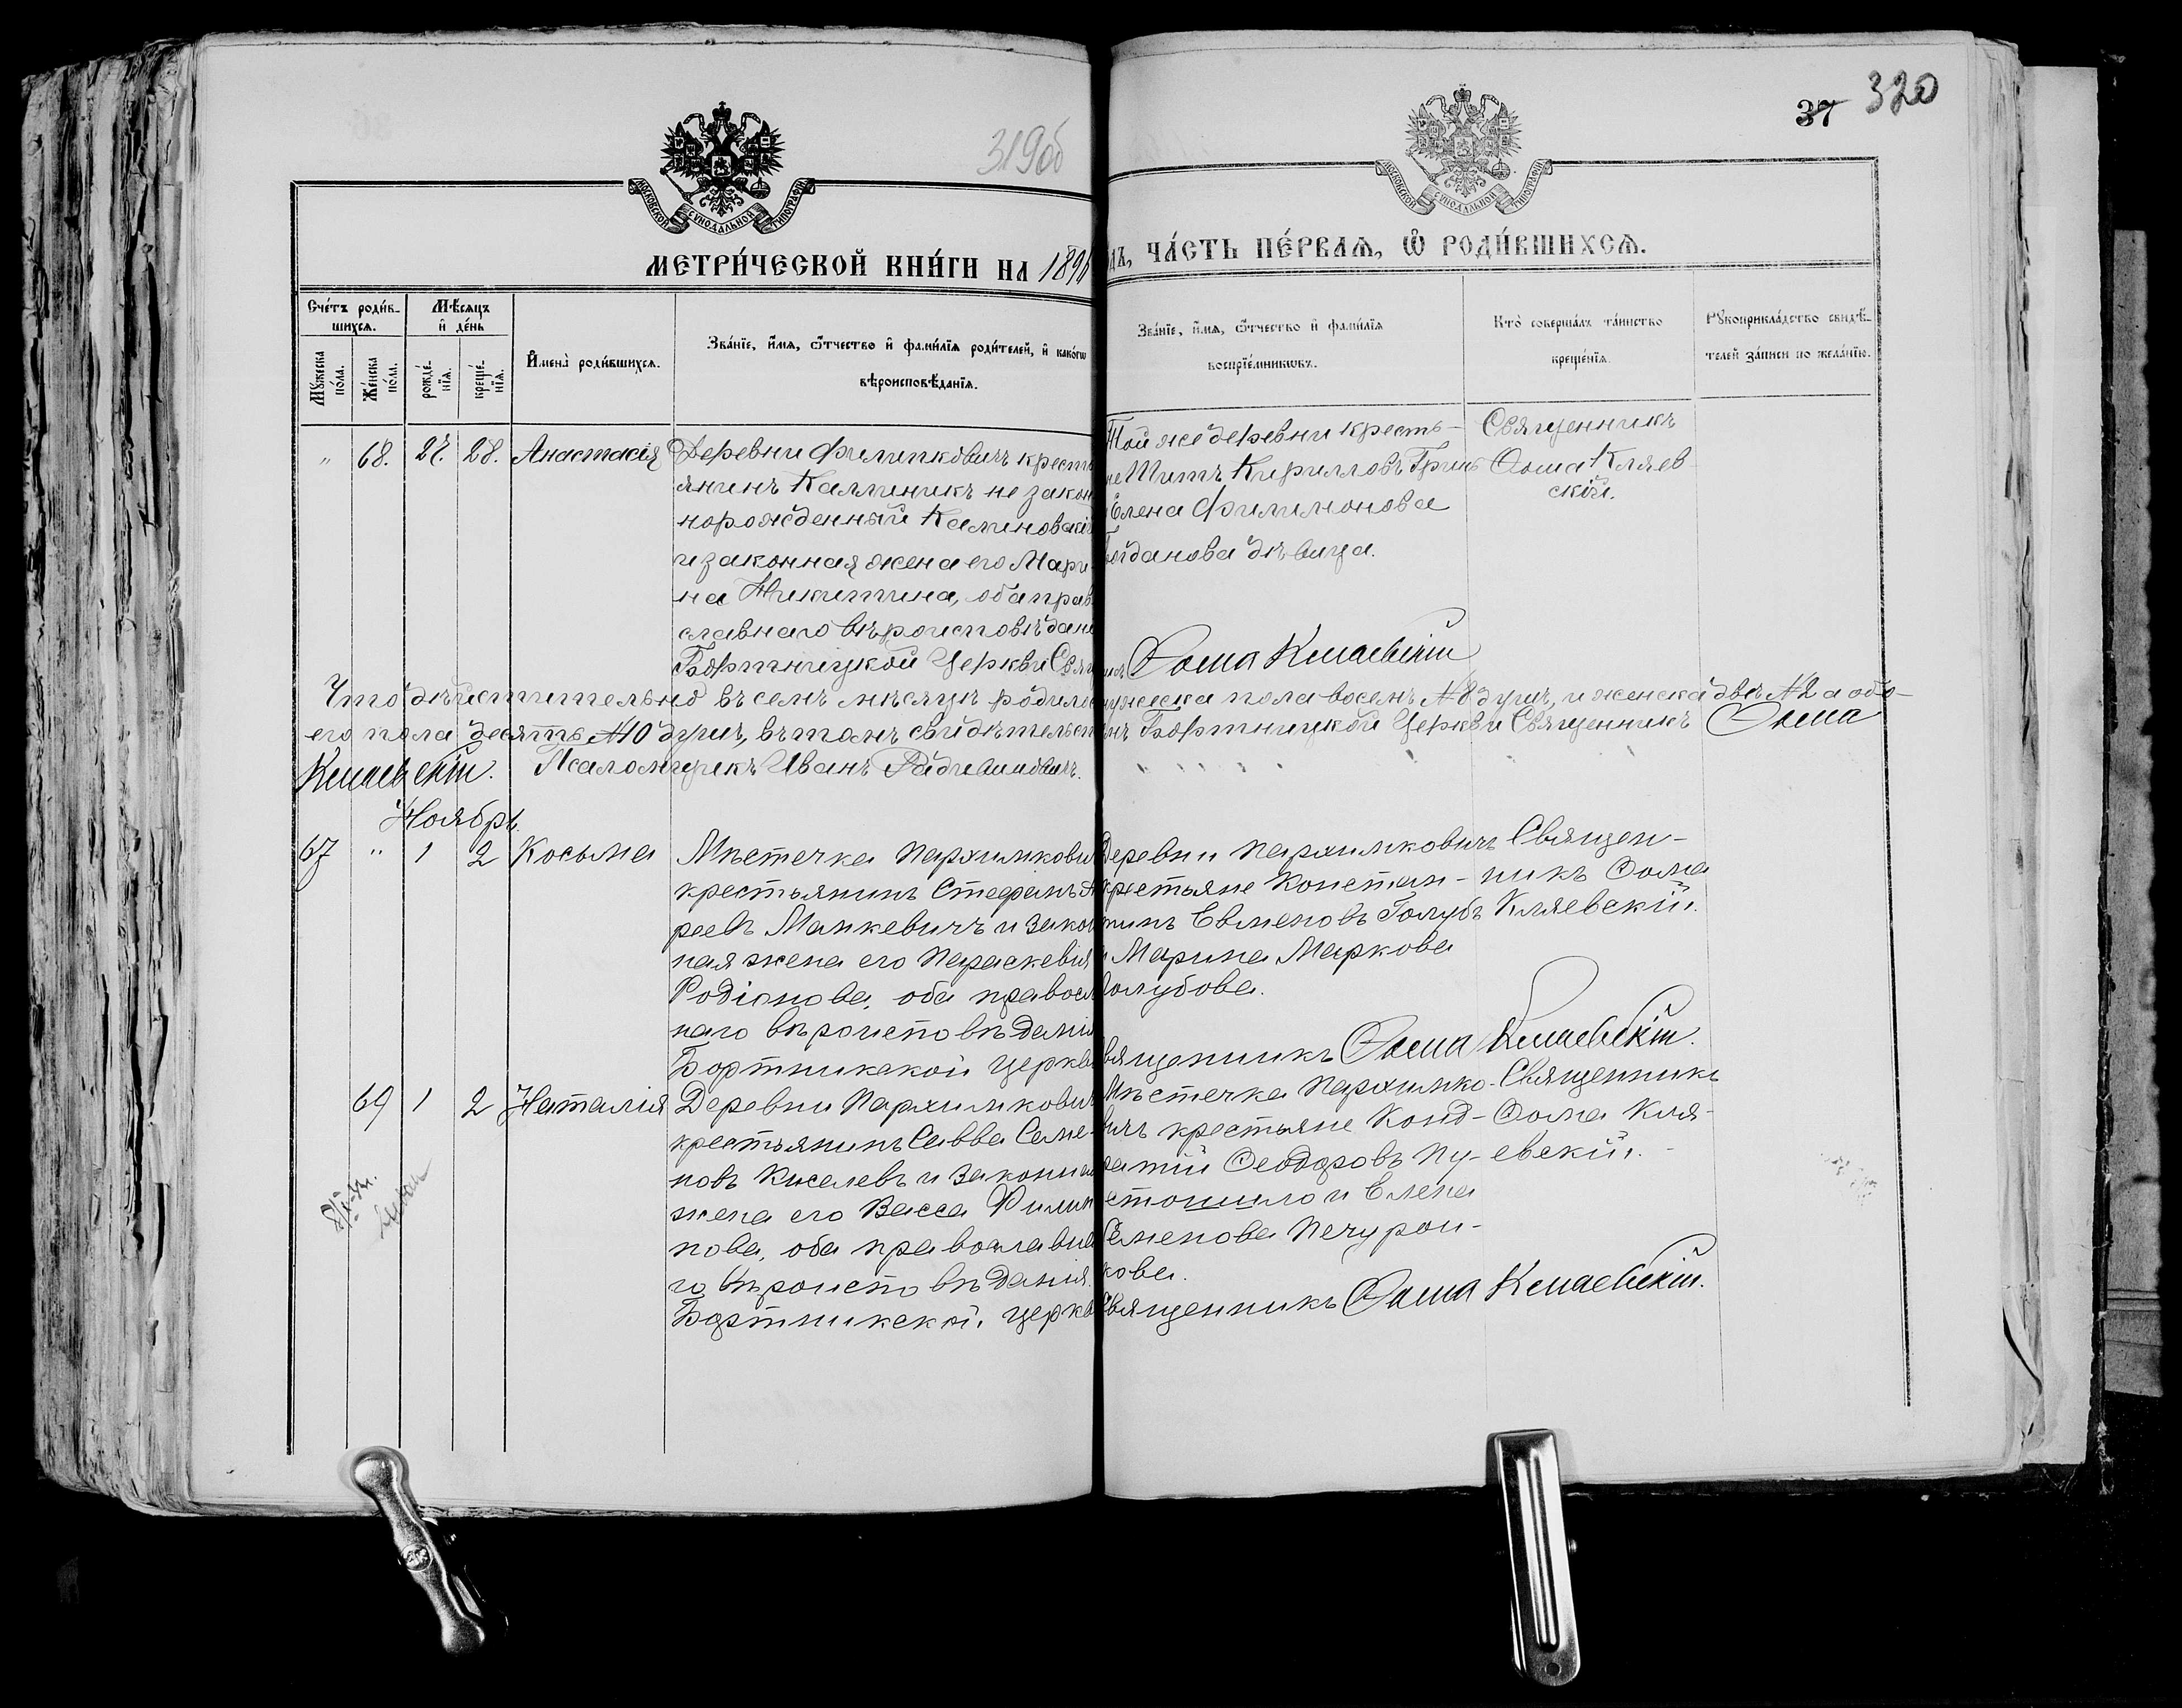 319об
37 320
МОСКОВСКОЙ СѴНОДАЛЬНОЙ ТИПОГРАФІИ
МОСКОВСКОЙ СѴНОДАЛЬНОЙ ТИПОГРАФІИ
МЕТРИ́ЧЕСКОЙ КНИ́ГИ НА 1896
ДЪ, ЧА́СТЬ ПЕ́РВАѦ, Ѽ РОДИ́ВШИХСѦ.
Сче́тъ роди́в-
шихсѧ.
Мѣ́сѧцъ
и҆ де́нь
И҆мена̀ роди́вшихсѧ.
Зва́нїе, и҆́мѧ, ѻ҆́тчество и҆ фами́лїѧ роди́телей, и҆ како́гѡ
вѣроисповѣ́данїѧ.
Мꙋ́жеска
по́ла.
Же́нска
по́ла.
рожде́-
нїѧ.
креще́-
нїѧ.
Зва́нїе, и҆́мѧ, ѻ҆́тчество и҆ фами́лїѧ
воспрїе́мникѡвъ.
Кто̀ соверша́лъ та́инство
креще́нїѧ.
Рꙋкоприкла́дство свидѣ́-
телей за́писи по жела́нїю.
" 68. 27. 28. Анастасія Деревни Филипковичъ кресть
янинъ Калиникъ незакон
норожденный Калиновскій
и законная жена его Мари
на Никитина, оба прав
славнаго вѣроисповѣдан
Бортницкой Церкви Свящ
Той же деревни кресть-
не Титъ Кирилловъ Гринь
Елена Филимонова
Богданова дѣвица.
Священникъ
Ѳома Кляев
скій.
Ѳома Кляевскій
Что дѣйстительно въ семъ мѣсяцѣ родилось мужеска пола восемь №8 душъ, и женска двѣ №2 а обо-
его пола десять №10 душъ, въ томъ свидѣтельст Бортницкой Церкви Священникъ Ѳома
Кляевскій. Псаломщикъ Иванъ
Ноябрь
67 " 1 2 Косьма Мѣстечка Пархимкови
крестьянинъ Стефанъ
реевъ Манкевичъ и закон
ная жена его Параскевія
Родіонова, оба правосл
наго вѣроисповѣданія
Бортникской церкви
Деревни Пархимковичъ
Крестьяне Констан-
тинъ Евменовъ Голубъ
и Марина Маркова
Голубова.
Священ-
никъ Ѳома
Кляевскій.
Священникъ Ѳома Кляевскій.
69 1 2 Наталія Деревни Пархимкович
крестьянинъ Савва Семе-
новъ Киселевъ и законная
жена его Васса Филип
пова, оба православна
го вѣроисповѣданія.
Бортникской церкв
Мѣстечка Пархимко-
вичъ крестьяне Конд-
ратій Ѳеодоровъ Пу-
стошило и Елена
Семенова Печурон-
кова.
Священникъ
Ѳома Кля-
евскій.
Священникъ Ѳома Кляевскій.